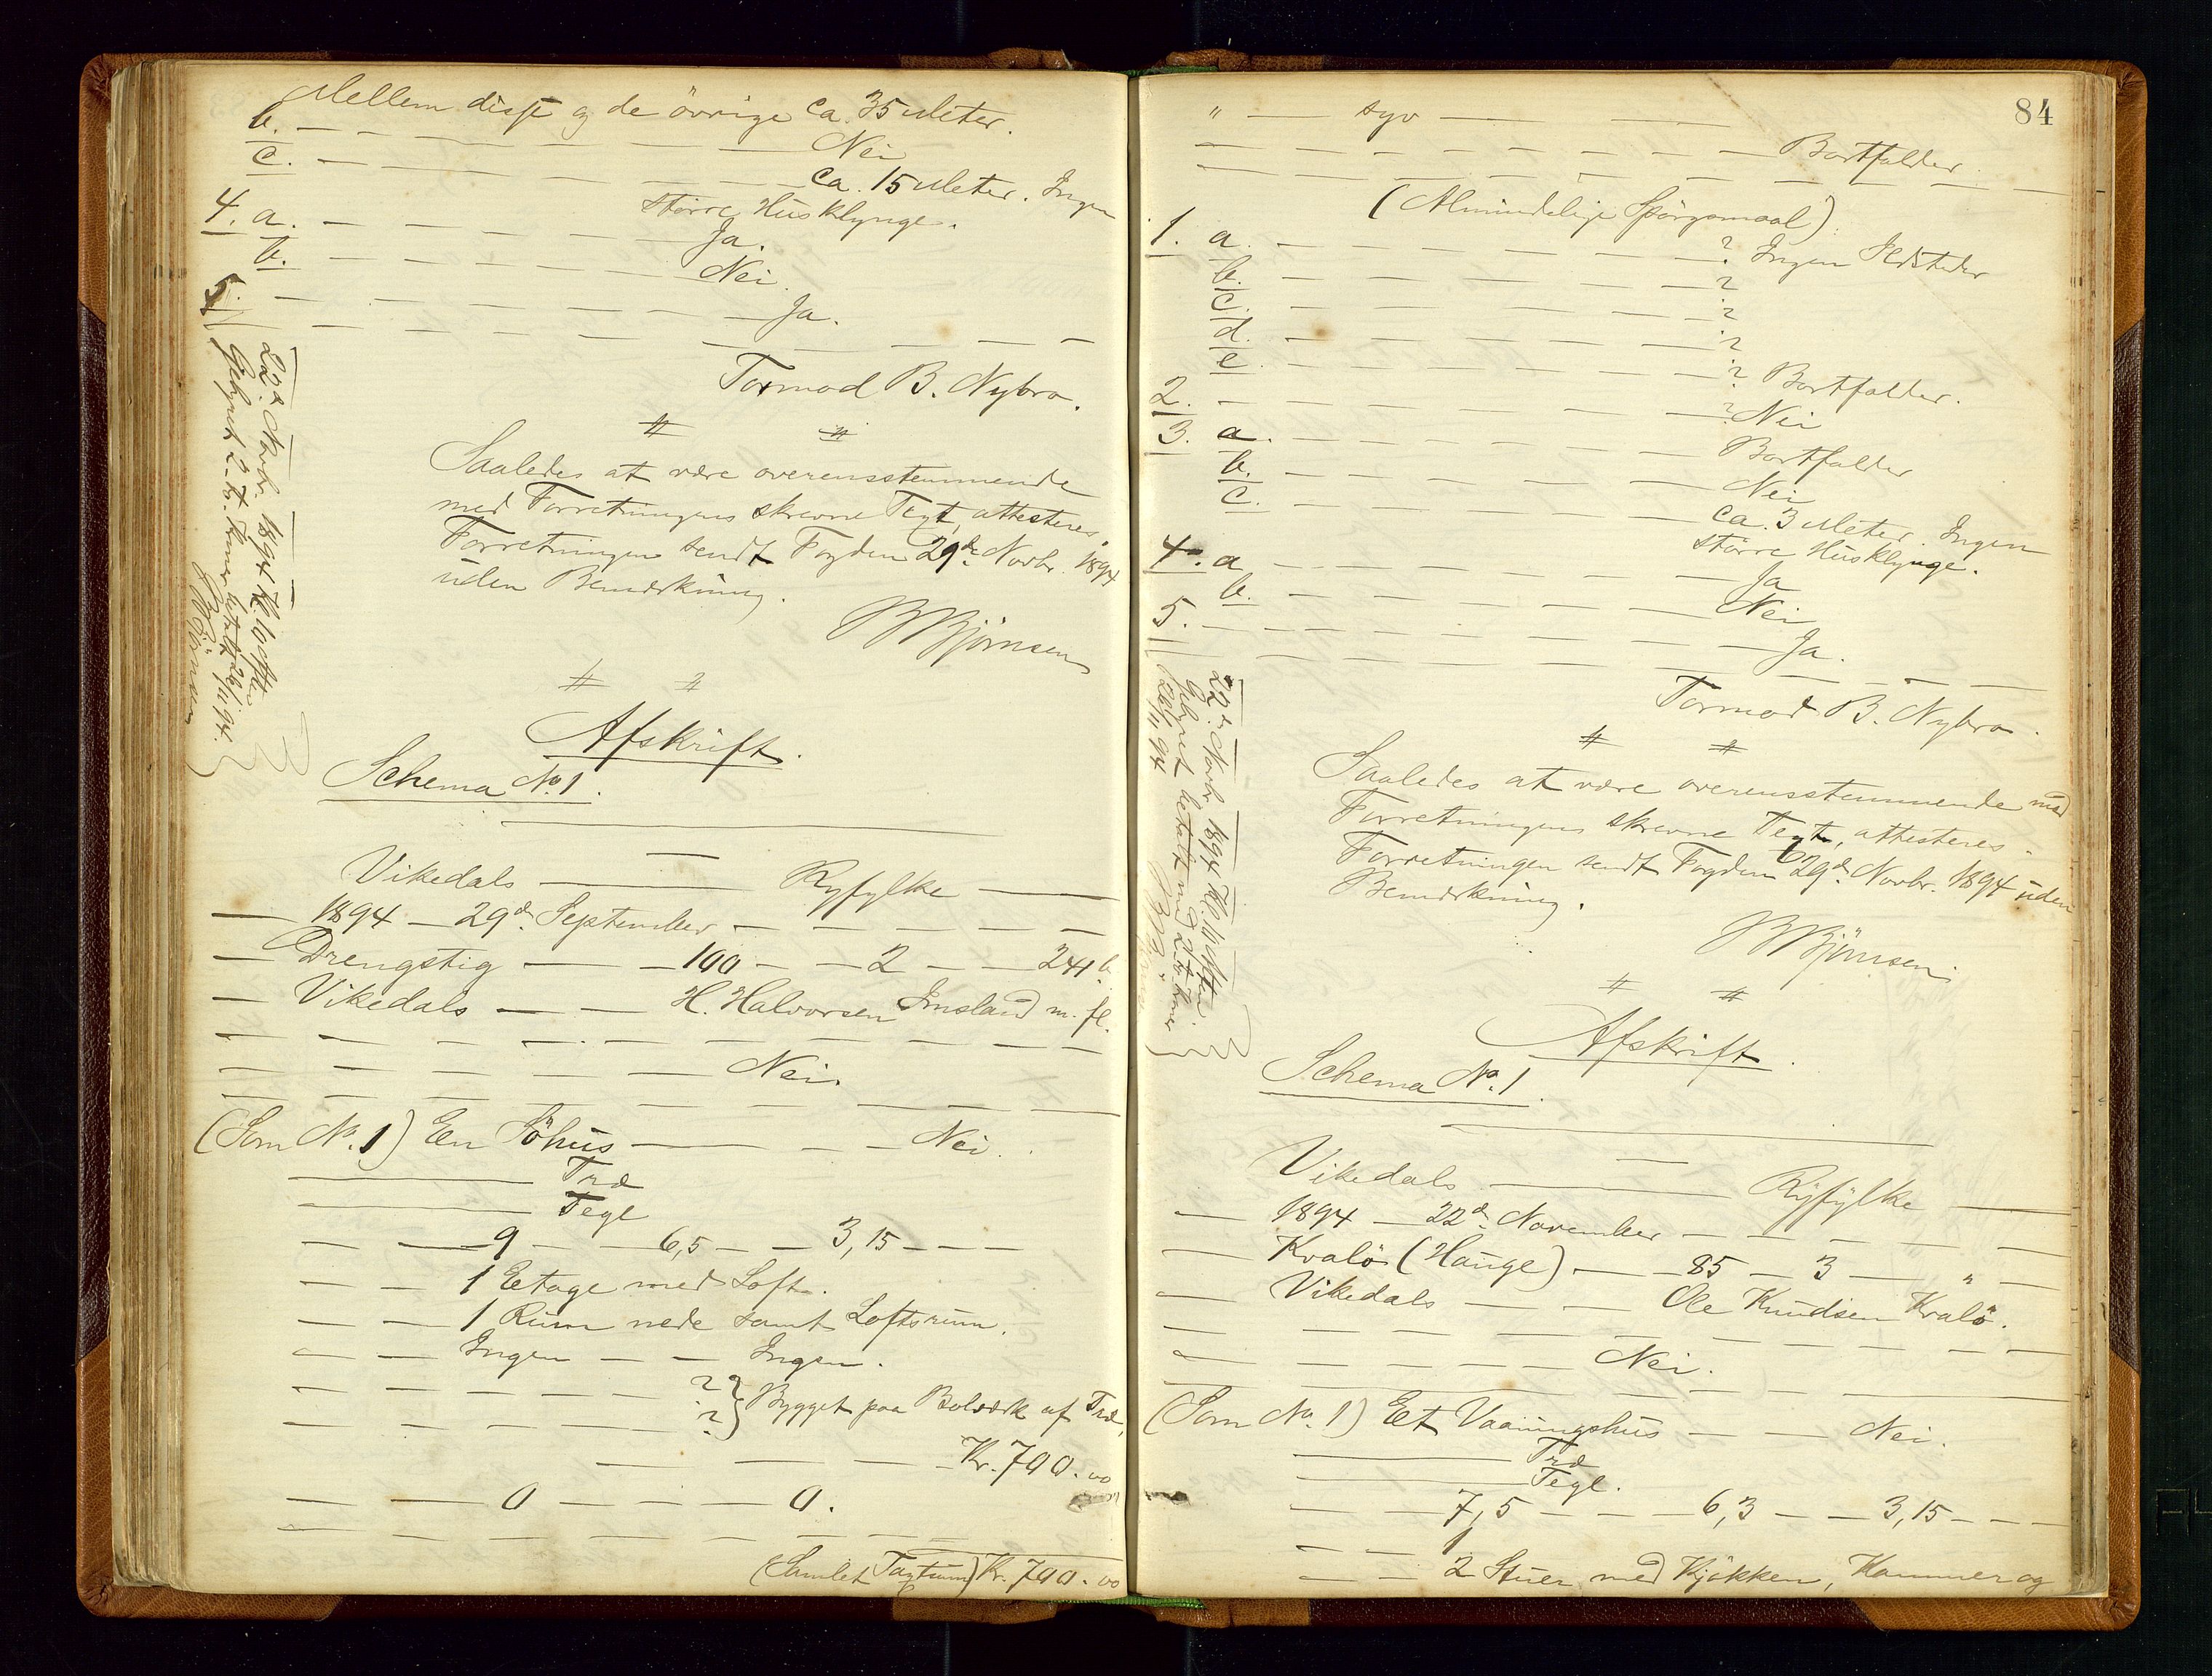 Mellem disse og de övrige ca. 35 Meter.
b. — — — — — — — Nei
c. — — — — — — — ca. 15 Meter. Ingen
större Husklynge.
4. a. — — — — — — Ja.
b. — — — — — — Nei.
5. — — — — — — — Ja.
— — — — — — — — — —
Tormod B. Nybro.
# #
Saaledes at være overensstemmende
med Forretningens skrevne Text, attesteres.
Forretningen sendt Fogden 29de Novbr. 1894
uden Bemærkning.
B Bjørnsen
# #
22de Novbr. 1894 Kl. 10 Aften
Gebyret 2 to Kroner betalt 26/11 94.
B Björnsen
Afskrift.
Schema No. 1.
Vikedals — — Ryfylke —
— 1894 — 29de September — — — — —
— Drengstig — — 100 — — 2 — — 241 b
— Vikedals — — H. Halvorsen Imsland m. fl.
— — — — — — — — — —
— — — — — — Nei.
— — — — — — — — — —
(Som No. 1) En Söhus — — — — Nei.
— Træ
— Tegl
— — 9 — — 6,5 — — 3,15 — — —
— — 1 Eetage med Loft.
— — 1 Rum nede samt Loftsrum.
— — Ingen — — Ingen.
— — — — — — ? ?} Bygget paa Bolværk af Træ,
— — — — — — ?}
— — — — Kr. 700.00
— — 0 — — — — 0.
— — — — — — — —
(Samlet Taxtsum) Kr. 700.00
84
" — syv — —
— — — — — — — — Bortfalder.
— — — — — — — — — — —
(Almindelige Spörgsmaal).
1. a. — — — — — — ? Ingen Ildsteder
b. — — — — — — ?
c. — — — — — — ?
d. — — — — — — ?
e. — — — — — — ? Bortfalder.
2. — — — — — — — ? Nei
3. a. — — — — — — Bortfalder
b. — — — — — — Nei
c. — — — — — — ca. 3 Meter. Ingen
större Husklynge.
4. a — — — — — — Ja
b. — — — — — — Nei
5. — — — — — — — Ja.
— — — — — — — — — —
Tormod B. Nybro.
# #
Saaledes at være overensstemmende med
Forretningens skrevne Text, attesteres.
Forretningen sendt Fogden 29de Novbr. 1894 uden
Bemærkning.
B Bjørnsen
# #
22de Novbr 1894 Kl. 10 Aften.
Gebyret betalt med 2 to Kroner
26/11 94
Afskrift.
Schema No. 1.
Vikedals — — Ryfylke —
— 1894 — 22de November — — — — —
— Kvalö (Hauge) — — 85 — 3 — " —
— Vikedals — — Ole Knudsen Kvalö.
— — — — — — — — — —
— — — — — — Nei.
— — — — — — — — — —
(Som No. 1) Eet Vaaningshus — — Nei.
— Træ
— Tegl.
— — 7,5 — — — 6,3 — — 3,15 — — —
— — 1
— — 2 Stuer med Kjökken, Kammer og